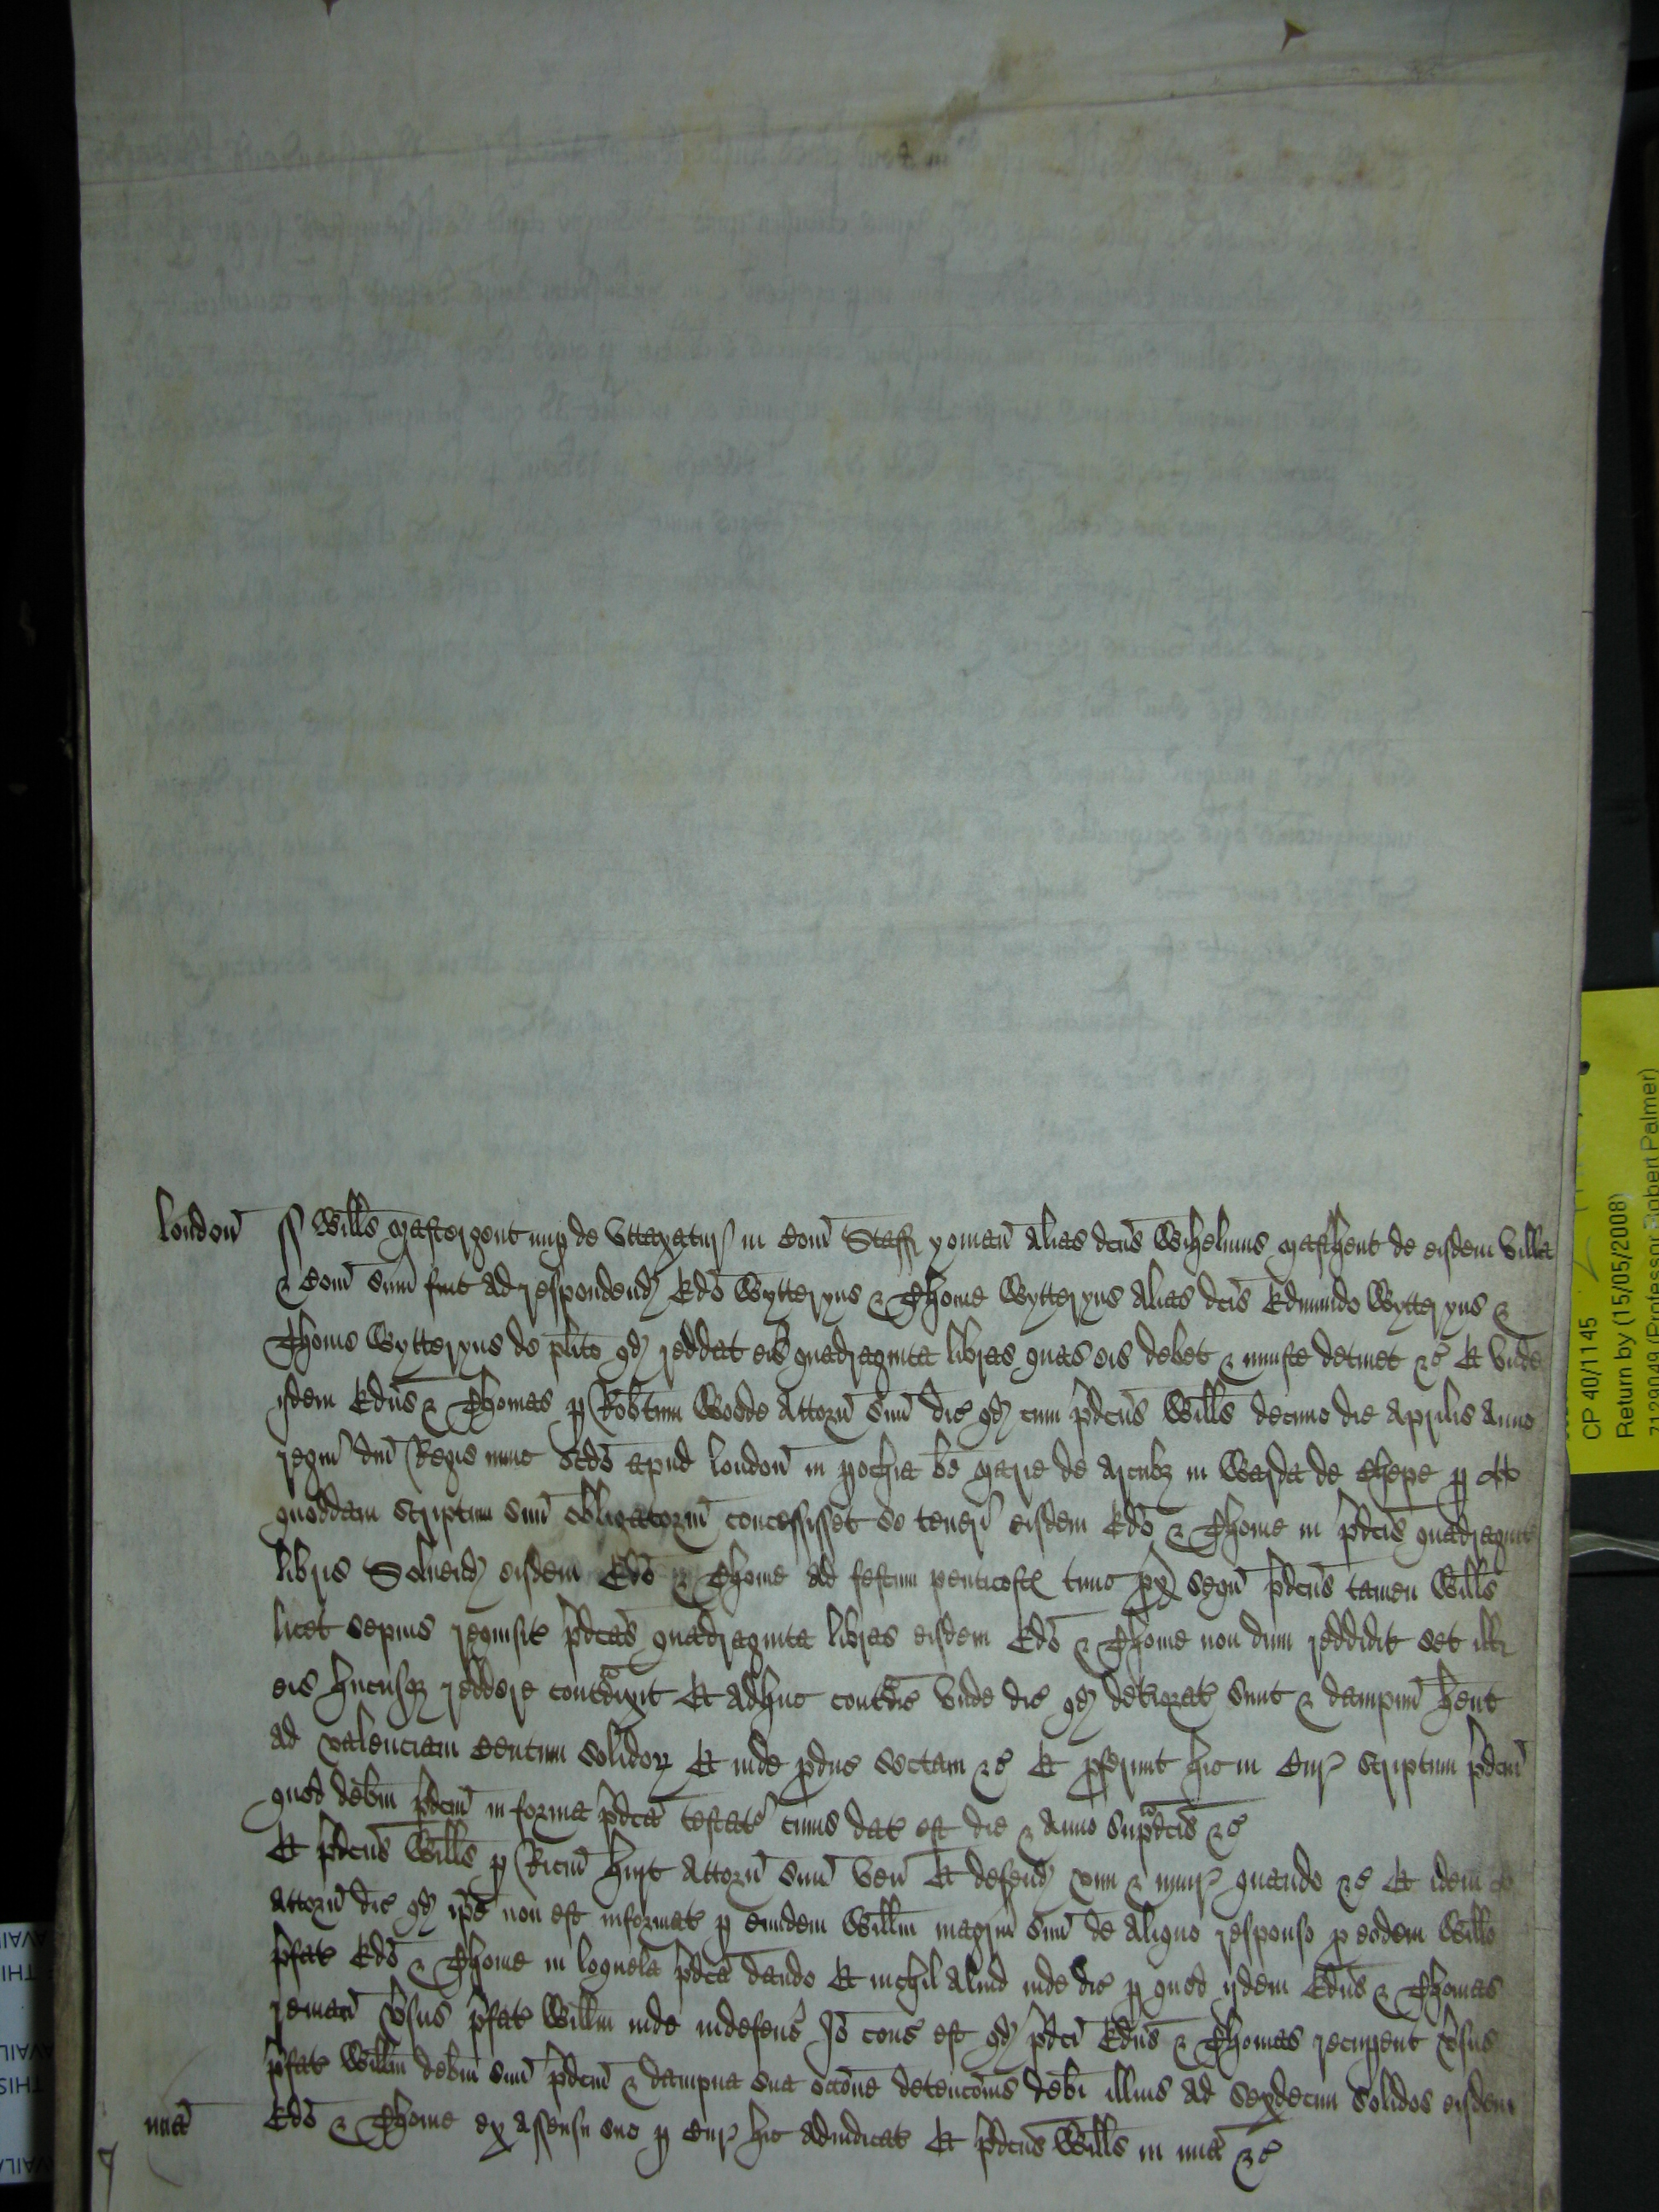 london̄ ss Willus Mastergent nup de Uttaxatur in Com̄ Staff yoman̄ alias dcus Willelmus Mastgent de eisdem villa
& Com̄ sum̄ fuit ad respondend Edo Wytteryns & Thome Wytteryns alias dcis Edmundo Wytteryns &
Thome Wytteryns de plito qd reddat eis quadraginta libras quas eis debet & iniuste detinet &c Et unde
ijdem Edus & Thomas p Robtum Woode Attorn̄ suu dic qd cum pdcus Willus decimo die Aprilis Anno
regni dni Regis nunc scdo apud london̄ in pochia be Marie de Arcubz in Warda de Chepe p
quoddam scriptum suu obligatoriu concessisset se teneri eisdem Edo & Thome in pdcis quadragint
libris Soluend eisdem Edo & Thome ad festum penticost tunc px sequ pdcus tamen Willus
licet sepius requisit pdcas quadraginta libras eisdem Edo & Thome non dum reddidit set ill
eis hucusqz reddere contdixit Et adhuc contdic unde dic qd deteriorat sunt & dampnu hent
ad valenciam Centum solidoꝝ Et inde pduc sectam &c Et pferunt hic in Cur scriptum pdcm
quod debm pdcm in forma pdca testat cuius dat est die & Anno supdcis &c
Et pdcus Willus p Ricm hurt Attorn̄ suu ven̄ Et defend vim & iniur quando &c Et idem
Attorn̄ dic qd ipe non est informat p eundem Willm magrm suu de aliquo responso p eodem Willo
pfat Edo & Thome in loquela pdca dando Et nichil aliud inde dic p quod ijdem Edus & Thomas
reman̄ vsus pfat Willm inde indefens Io cons est qd pdci Edus & Thomas recupent vsus
pfat Willm debm suu pdcm & dampna sua occone detencois debi illius ad sexdecim solidos eisdem
mia Edo & Thome ex assensu suo p Cur hic adiudicat Et pdcus Willus in mia &c
CP 40/1145
Return by (15/05/2008)
(Professor Robert Palmer)